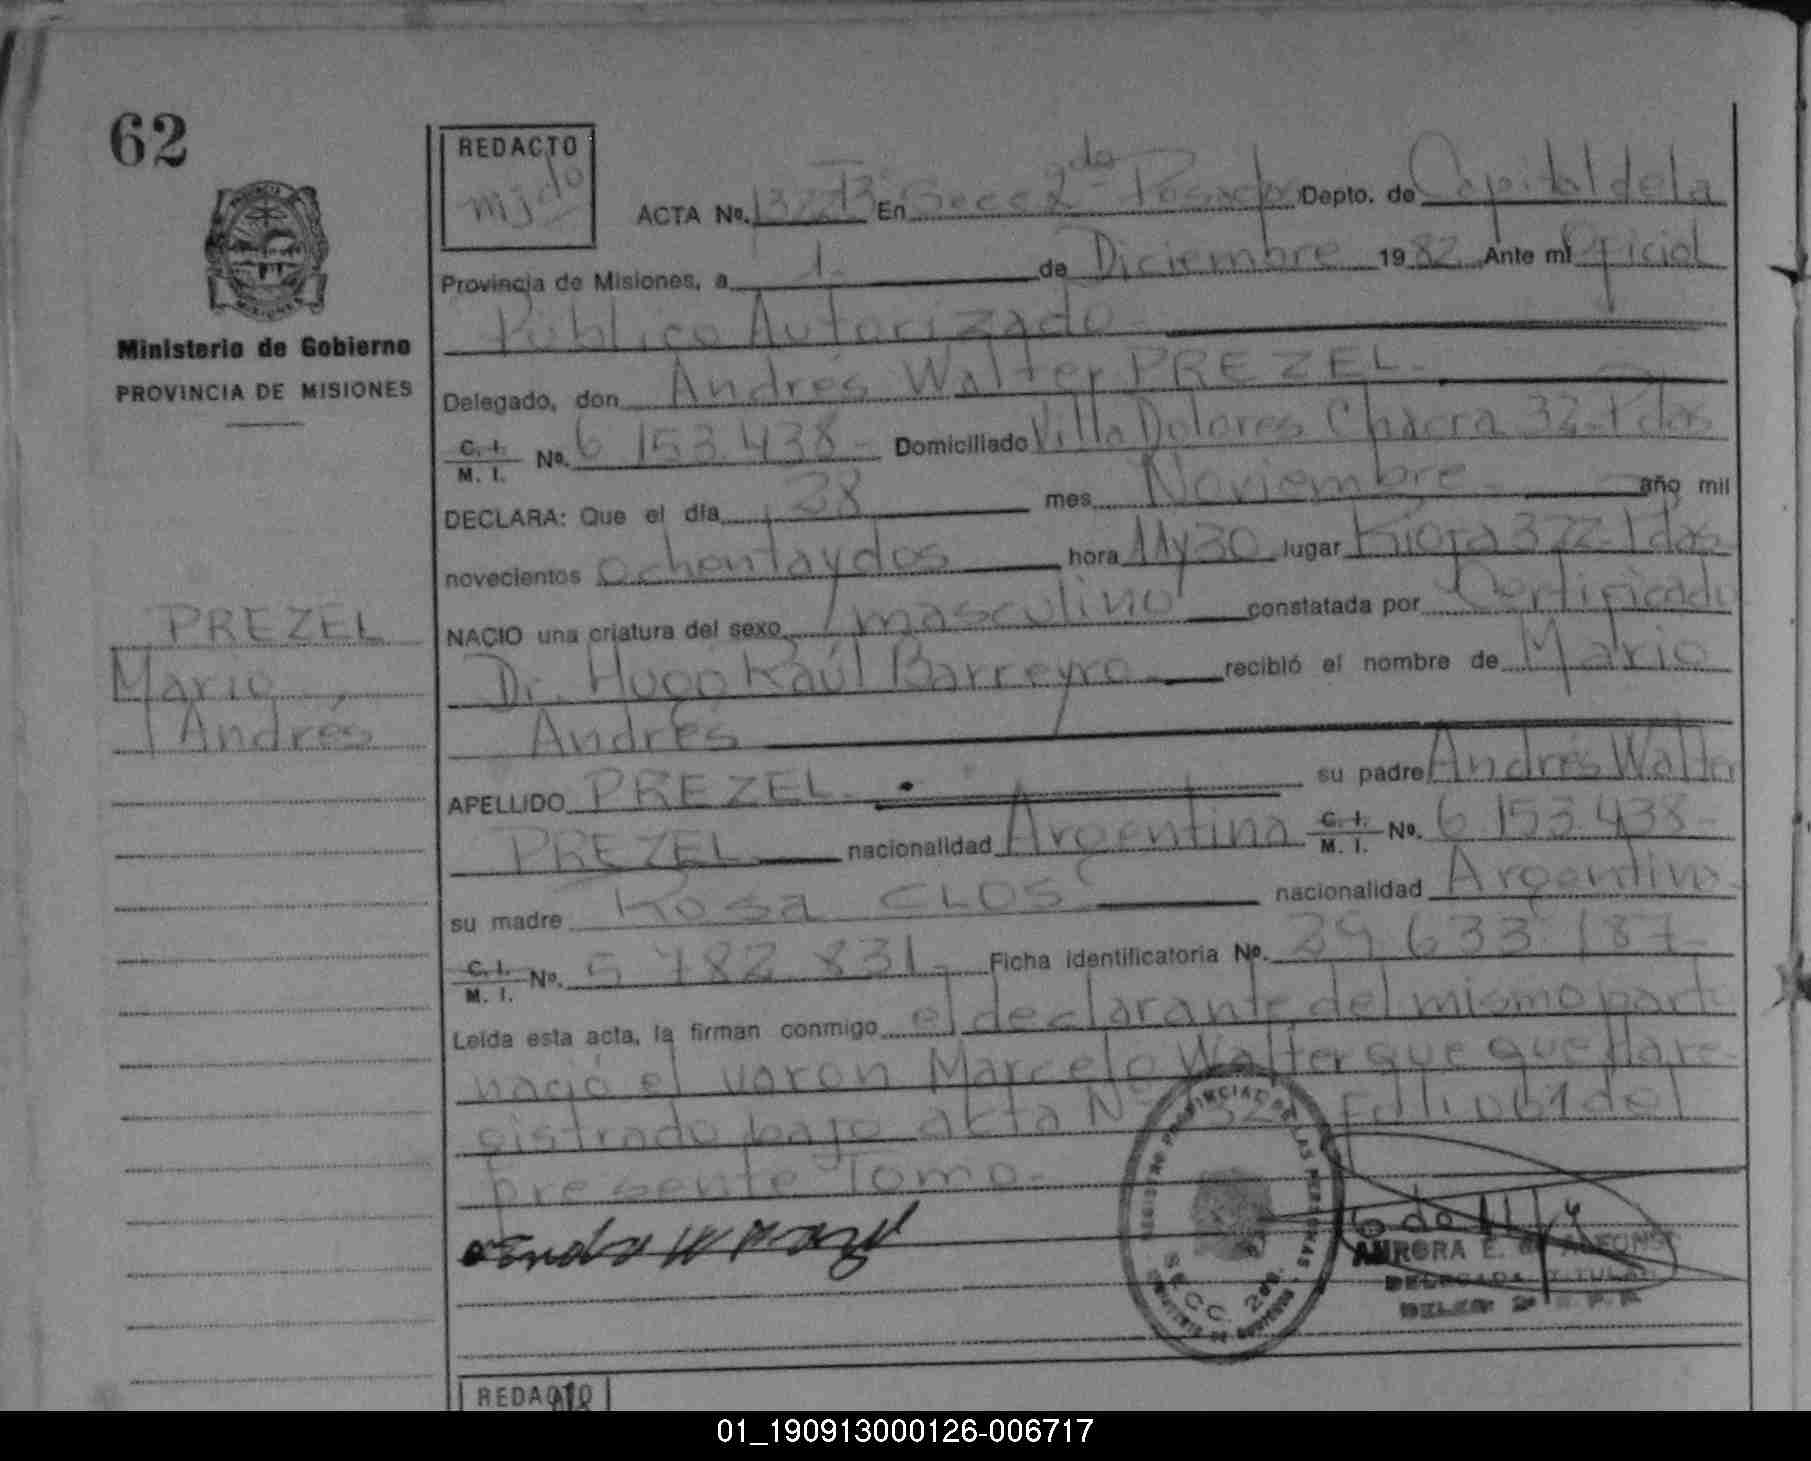 62
REDACTO
ACTA No. En Secc 2da Posadas Depto. de Capital de la
Provincia de Misiones, a 1. de Diciembre 1982 Ante mi Oficial
Público Autorizado
Ministerio de Gobierno
PROVINCIA DE MISIONES
Delegado, don Andrés Walter PREZEL.
C. I. M. I. No. 6 153.438- Domiciliado Villa Dolores Chacra 32-Pdas
DECLARA: Que el día 28 mes Noviembre año mil
novecientos ochenta y dos hora 11 y 30 lugar Rioja 322-Pdas
NACIO una criatura del sexo masculino constatada por Certificado
Dr. Hugo Raúl Barreyro recibió el nombre de Mario
Andrés
PREZEL
Mario
Andrés
APELLIDO PREZEL. su padre Andrés Walter
PREZEL nacionalidad Argentina C. I. M. I. No. 6 153.438-
su madre Rosa CLOS nacionalidad Argentina
C. I. M. I. No. 5 782 831- Ficha identificatoria No. 29 633 187-
Leída esta acta, la firman conmigo el declarante del mismo part
nació el varon Marcelo Walter que queda re-
gistrado bajo acta No del
presente Tomo.-
REGISTRO PROVINCIAL DE LAS PERSONAS
SECC. 2da.
AURORA E. ALFONSO
DELEGADA TITULAR
REDACTO
01_190913000126-006717